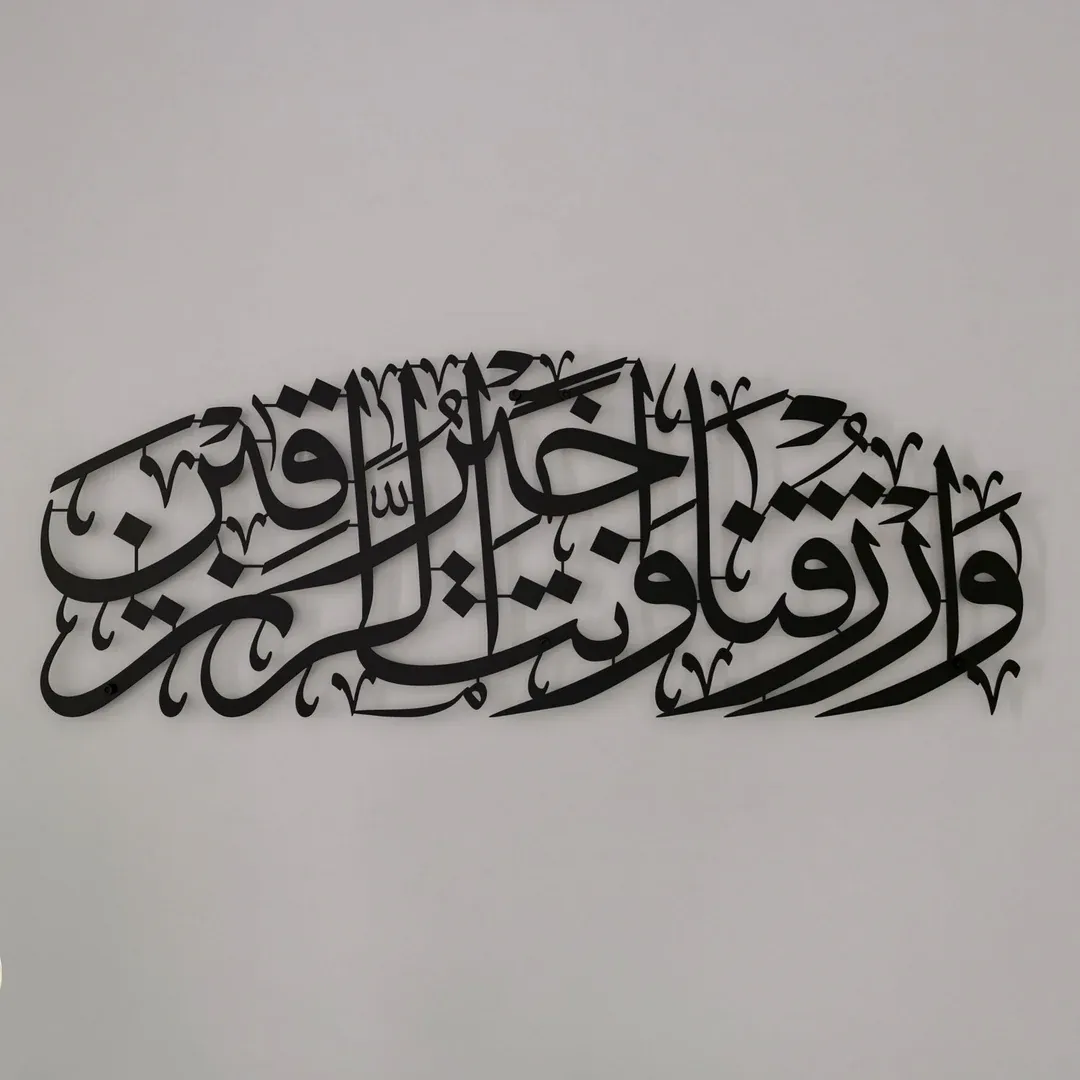 وَارْزُقْنَا وَأَنتَ خَيْرُ الرَّازِقِينَ